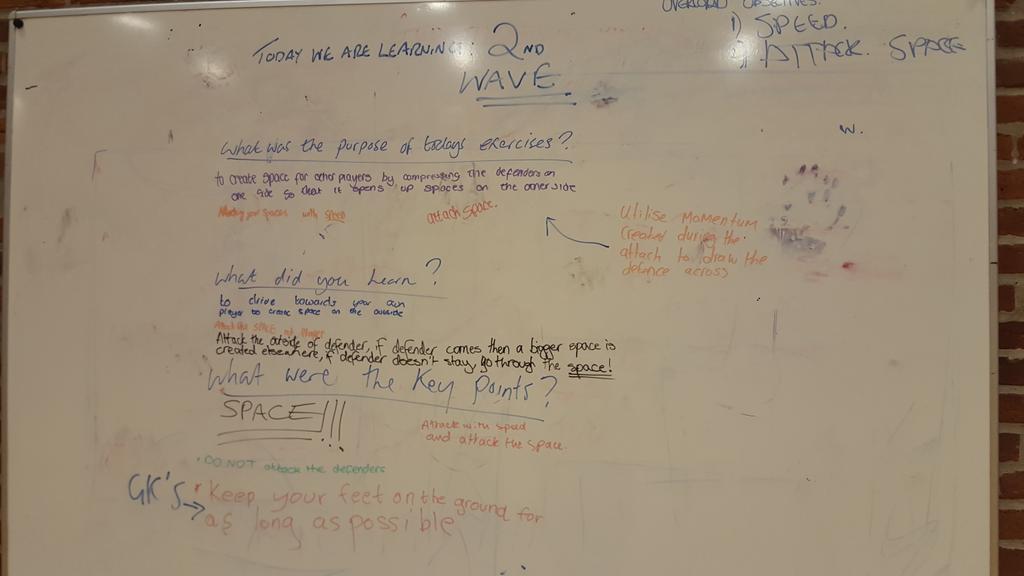 OVERLOAD OBJECTIVES:
1) SPEED.
2) ATTACK SPACE
TODAY WE ARE LEARNING: 2ND
WAVE
W.
What was the purpose of todays exercises?
to create space for other players by compressing the defenders on
one side so that it opens up spaces on the other side
spaces with speed
attack space.
Utilise Momentum
created during the
attack to draw the
defence across
What did you learn?
to drive towards your own
player to create space on the outside
Attack the SPACE not Player
Attack the outside of defender, if defender comes then a bigger space is
created elsewhere, if defender doesn't stay, go through the space!
What were the Key Points?
SPACE!!!
Attack with speed
and attack the space.
• DO NOT attack the defenders
GK'S → • Keep your feet on the ground for
as long as possible